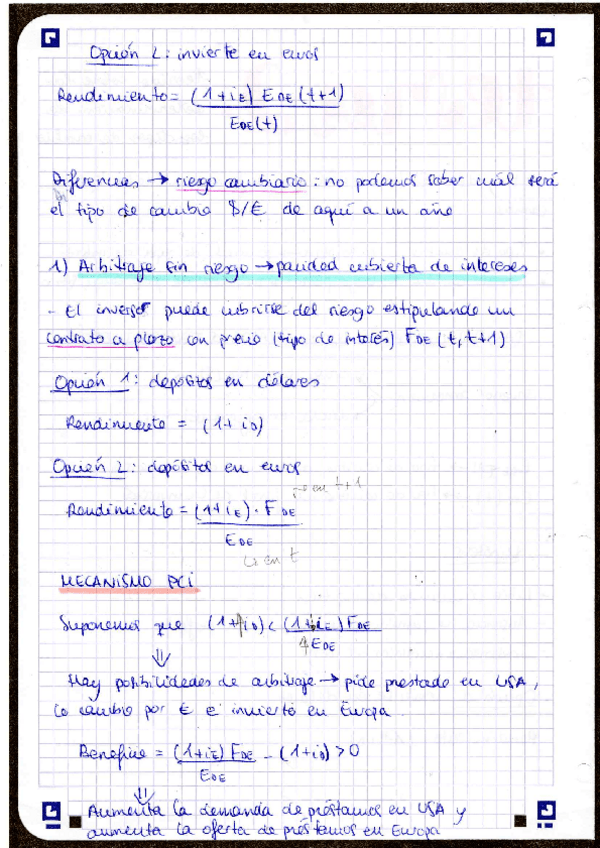 Opción 2: invierte en euros
Rendimiento = (1+iE) EDE (t+1)
EDE(t)
Diferencias → riesgo cambiario: no podemos saber cuál será
el tipo de cambio $/€ de aquí a un año
1) Arbitraje sin riesgo → paridad cubierta de intereses
- El inversor puede cubrirse del riesgo estipulando un
contrato a plazo con precio (tipo de interés) FDE (t, t+1)
Opción 1: depósitos en dólares
Rendimiento = (1+ iD)
Opción 2: depósitos en euros
→ en t+1
Rendimiento = (1+iE) · FDE
EDE
↳ en t
MECANISMO PCI
Suponemos que (1+iD) < (1+iE) FDE
EDE
⇓
Hay posibilidades de arbitraje → pide prestado en USA,
lo cambio por € e invierto en Europa
Beneficio = (1+iE) FDE - (1+iD) > 0
EDE
⇓
Aumenta la demanda de préstamos en USA y
aumenta la oferta de préstamos en Europa